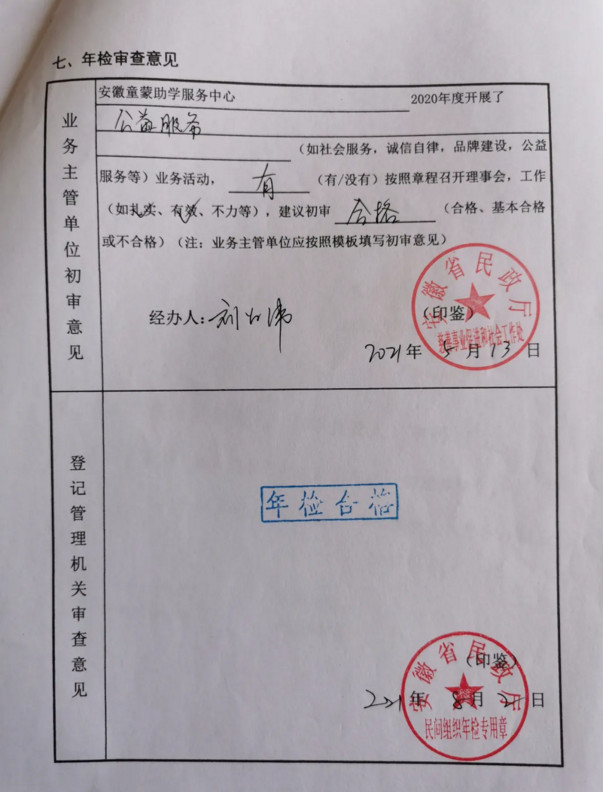 七、年检审查意见
业务主管单位初审意见
安徽童蒙助学服务中心 2020年度开展了
公益服务
(如社会服务，诚信自律，品牌建设，公益
服务等)业务活动， 有 (有/没有)按照章程召开理事会，工作
(如扎实、有效、不力等)，建议初审 合格 (合格、基本合格
或不合格)(注：业务主管单位应按照模板填写初审意见)
经办人：
(印鉴)
安徽省民政厅
慈善事业促进和社会工作处
2021年 5月13日
登记管理机关审查意见
年检合格
(印鉴)
安徽省民政厅
民间组织年检专用章
2021年 8月 日